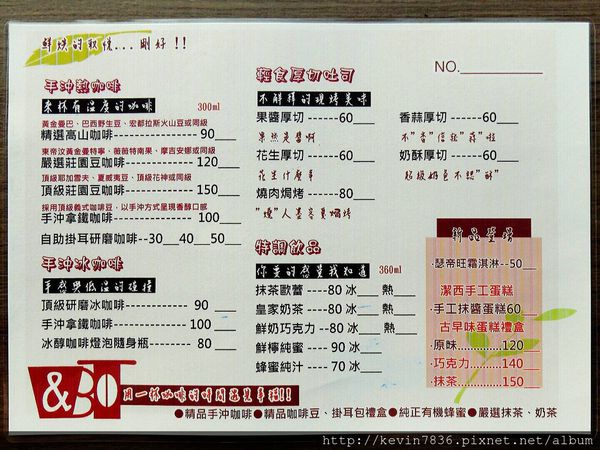 鮮燒的軟燒...剛好!!
NO.
手沖熱咖啡
來杯有溫度的咖啡 300ml
黃金曼巴、巴西野生豆、宏都拉斯火山豆或同級
精選高山咖啡------------90
東帝汶黃金曼特寧、薇薇特南果、摩吉安娜或同級
嚴選莊園豆咖啡-----------120
頂級耶加雪夫、夏威夷豆、頂級花神或同級
頂級莊園豆咖啡-----------150
採用頂級義式咖啡豆，以手沖方式呈現香醇口感
手沖拿鐵咖啡------------ 100
自助掛耳研磨咖啡--30 40 50
手沖冰咖啡
手感與低溫的碰撞
頂級研磨冰咖啡---------- 90
手沖拿鐵咖啡------------ 100
冰醇咖啡燈泡隨身瓶------- 80
輕食厚切吐司
不解釋的現烤美味
果醬厚切 ------60
果然是醬啊
花生厚切 ------60
花生什麼事
燒肉焗烤 ------80
香蒜厚切 ------60
不"香"信就"蒜"啦
奶酥厚切 ------60
超級奶爸不認"酥"
特調飲品
你要的感覺我知道 360ml
抹茶歐蕾 ----80 冰 熱
皇家奶茶 ----80 冰 熱
鮮奶巧克力 --80 冰 熱
鮮檸純蜜 ---- 90 冰
蜂蜜純汁 ---- 70 冰
新品登場
·瑟帝旺霜淇淋--50
潔西手工蛋糕
·手工抹醬蛋糕60
古早味蛋糕禮盒
·原味............120
·巧克力.........140
·抹茶............150
&BOT
用一杯咖啡的時間蒐集幸福!!
●精品手沖咖啡●精品咖啡豆、掛耳包禮盒●純正有機蜂蜜●嚴選抹茶、奶茶
http://kevin7836.pixnet.net/album